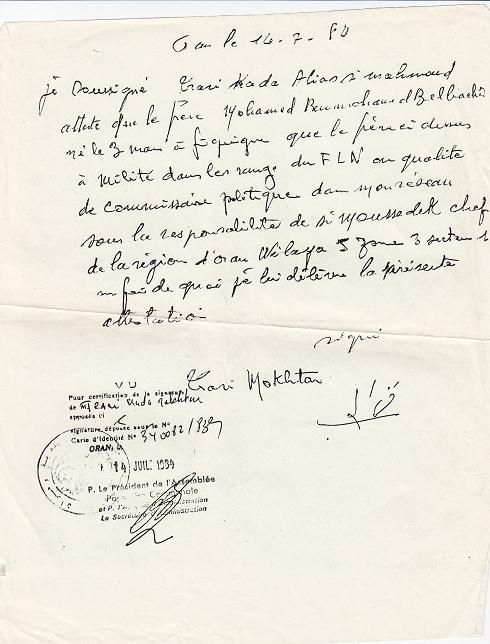 Oran le 14.7.84
je soussigné Trari Kada Alias si mahmoud
atteste que le frere Mohamed Benmohamed Belbachir
né le 3 mars à figuigue que le frère ci dessus
à milité dans les rangs du FLN en qualité
de commissaire politique dans mon réseau
sous la responsabilité de si Moussedek chef
de la région d'oran Wilaya 5 zone 3 secteur 1
en foi de quoi je lui délivre la présente
attestation
signé
Trari Mokhtar
VU
Pour certification de la signature
de Kada Mokhtar
apposée ci
signature déposée sous le No
Carte d'Identité No
ORAN, le
14 JUIL 1984
P. Le Président de l'Assemblée
Populaire Communale
et P. Administration
Le Secrétaire d'Administration